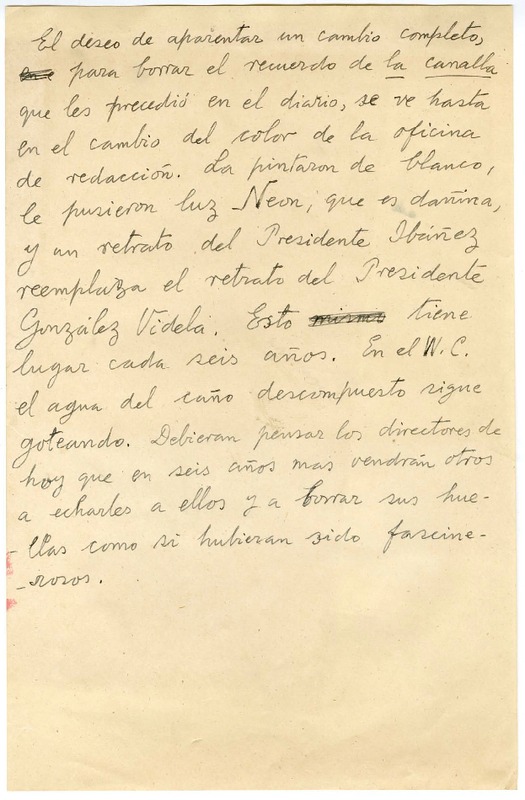 El deseo de aparentar un cambio completo,
para borrar el recuerdo de la canalla
que les precedió en el diario, se ve hasta
en el cambio del color de la oficina
de redacción. La pintaron de blanco,
le pusieron luz Neon, que es dañina,
y un retrato del Presidente Ibáñez
reemplaza el retrato del Presidente
González Videla. Esto mismo tiene
lugar cada seis años. En el W.C.
el agua del caño descompuesto sigue
goteando. Debieran pensar los directores de
hoy que en seis años mas vendrán otros
a echarles a ellos y a borrar sus hue-
-llas como si hubieran sido fascine-
-rosos.